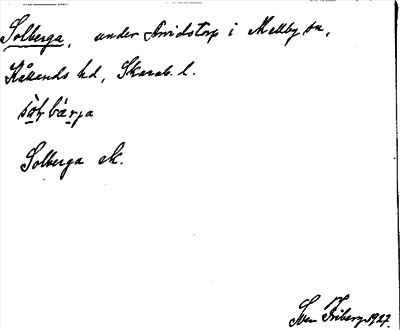 Solberga, under Arvidstorp i Mellby sn,
Kållands hd, Skarab. l.
sòḷbǽrja
Solberga sk.
Sven Friberg 1927.